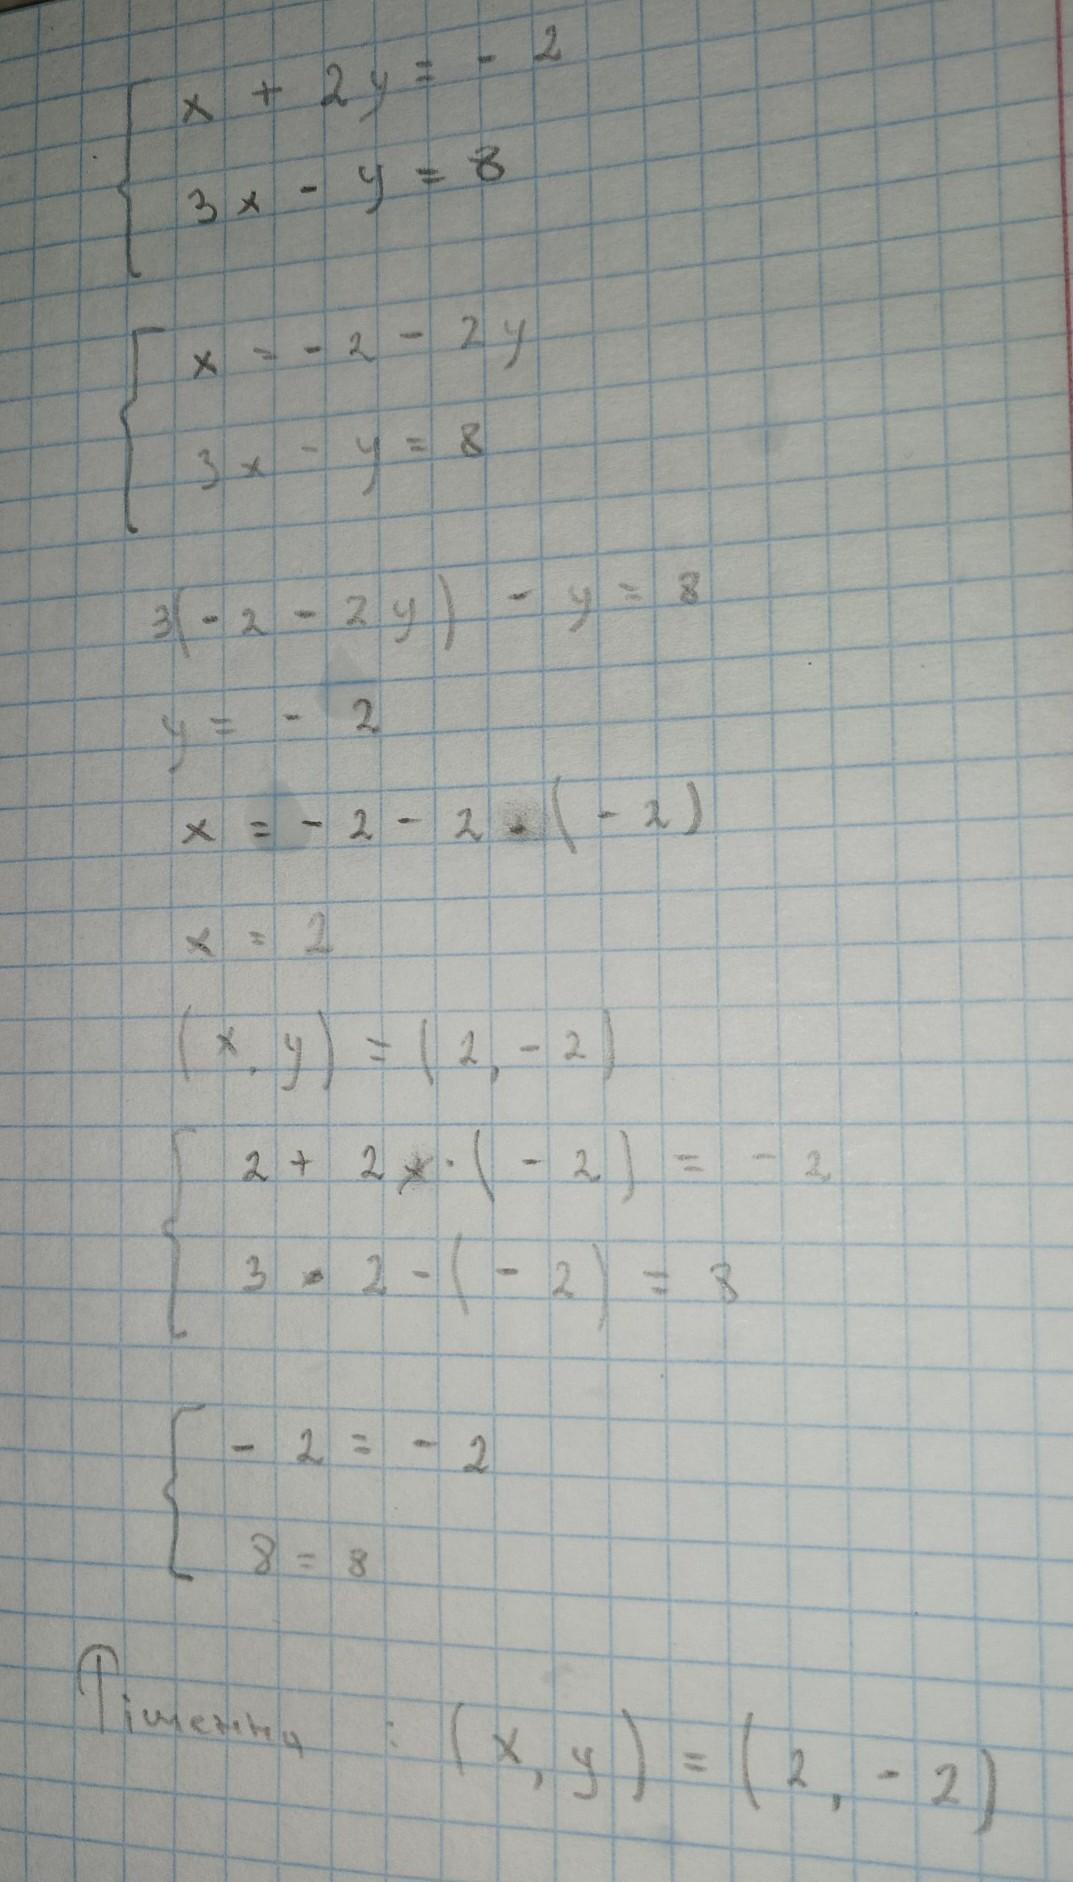 x + 2y = - 2
3x - y = 8
x = - 2 - 2y
3x - y = 8
3(- 2 - 2y) - y = 8
y = - 2
x = - 2 - 2 · (- 2)
x = 2
(x, y) = (2, - 2)
2 + 2x · (- 2) = - 2
3 · 2 - (- 2) = 8
- 2 = - 2
8 = 8
Рішення : (x, y) = (2, - 2)